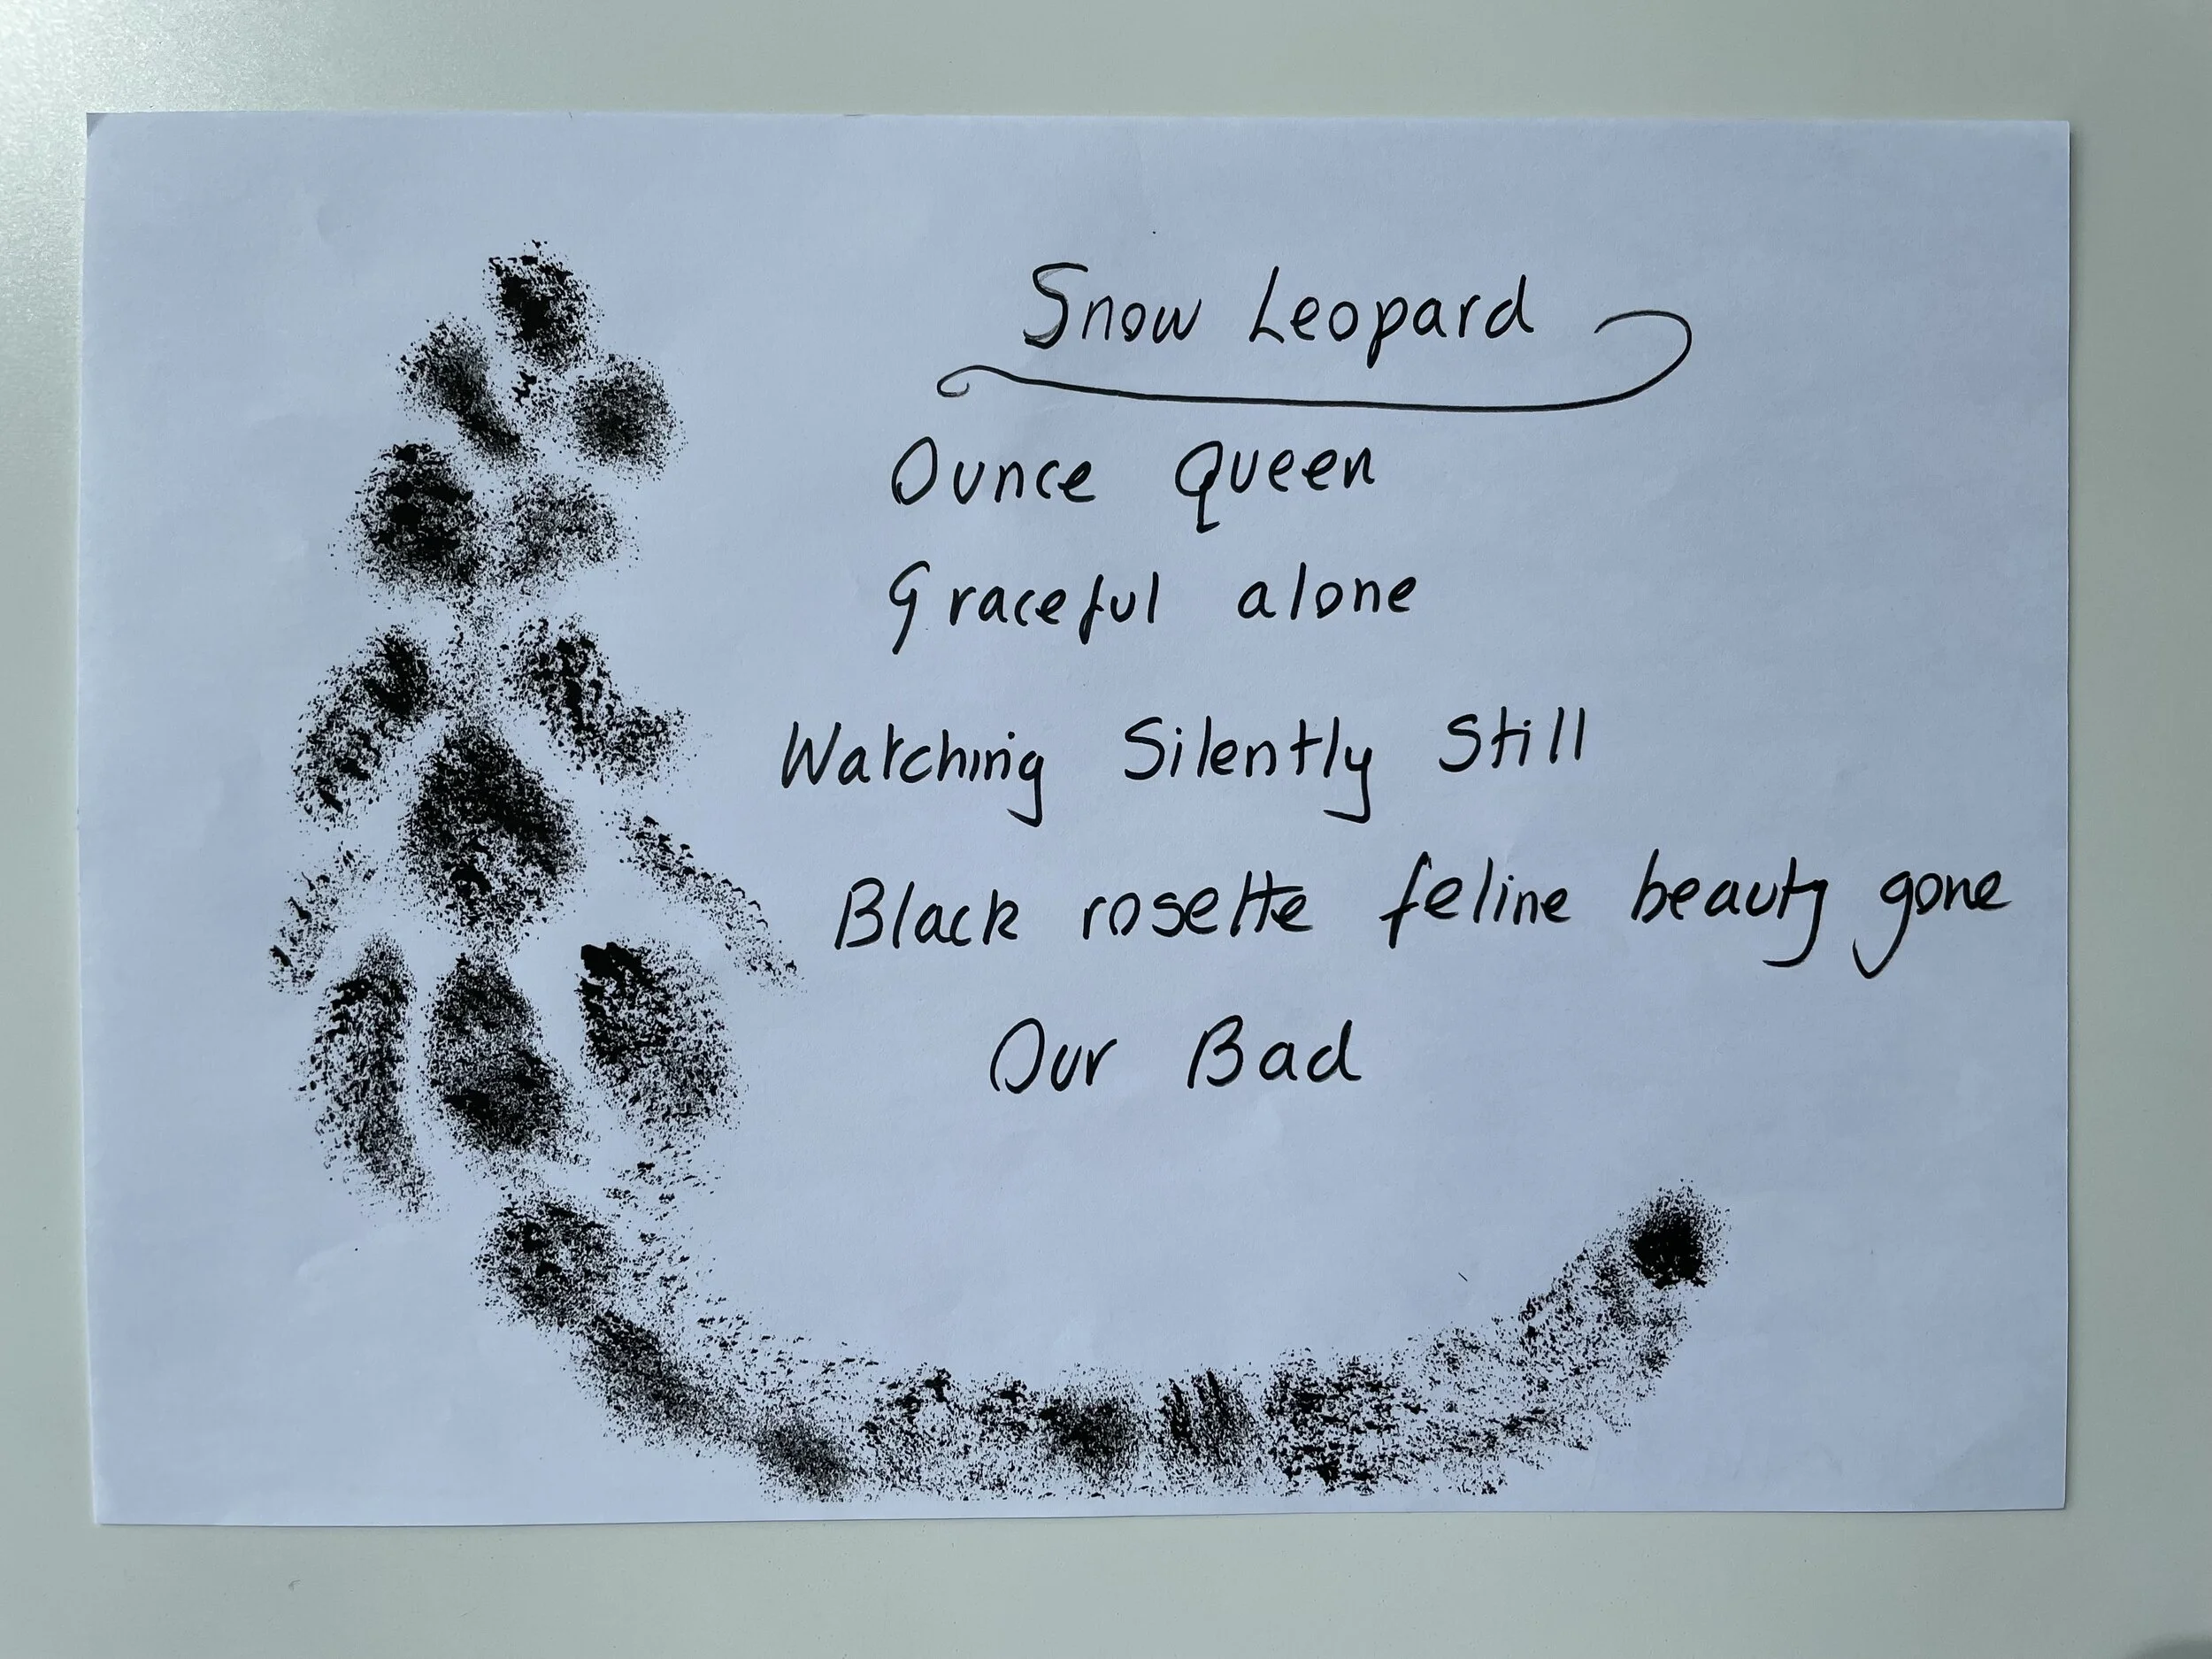 Snow Leopard
Ounce Queen
Graceful alone
Watching Silently Still
Black rosette feline beauty gone
Our Bad